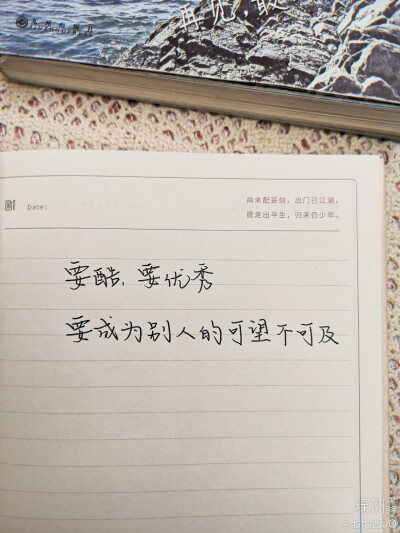 Date:
尚未配妥剑，出门已江湖，
愿走出半生，归来仍少年。
要酷，要优秀
要成为别人的可望不可及
绿洲